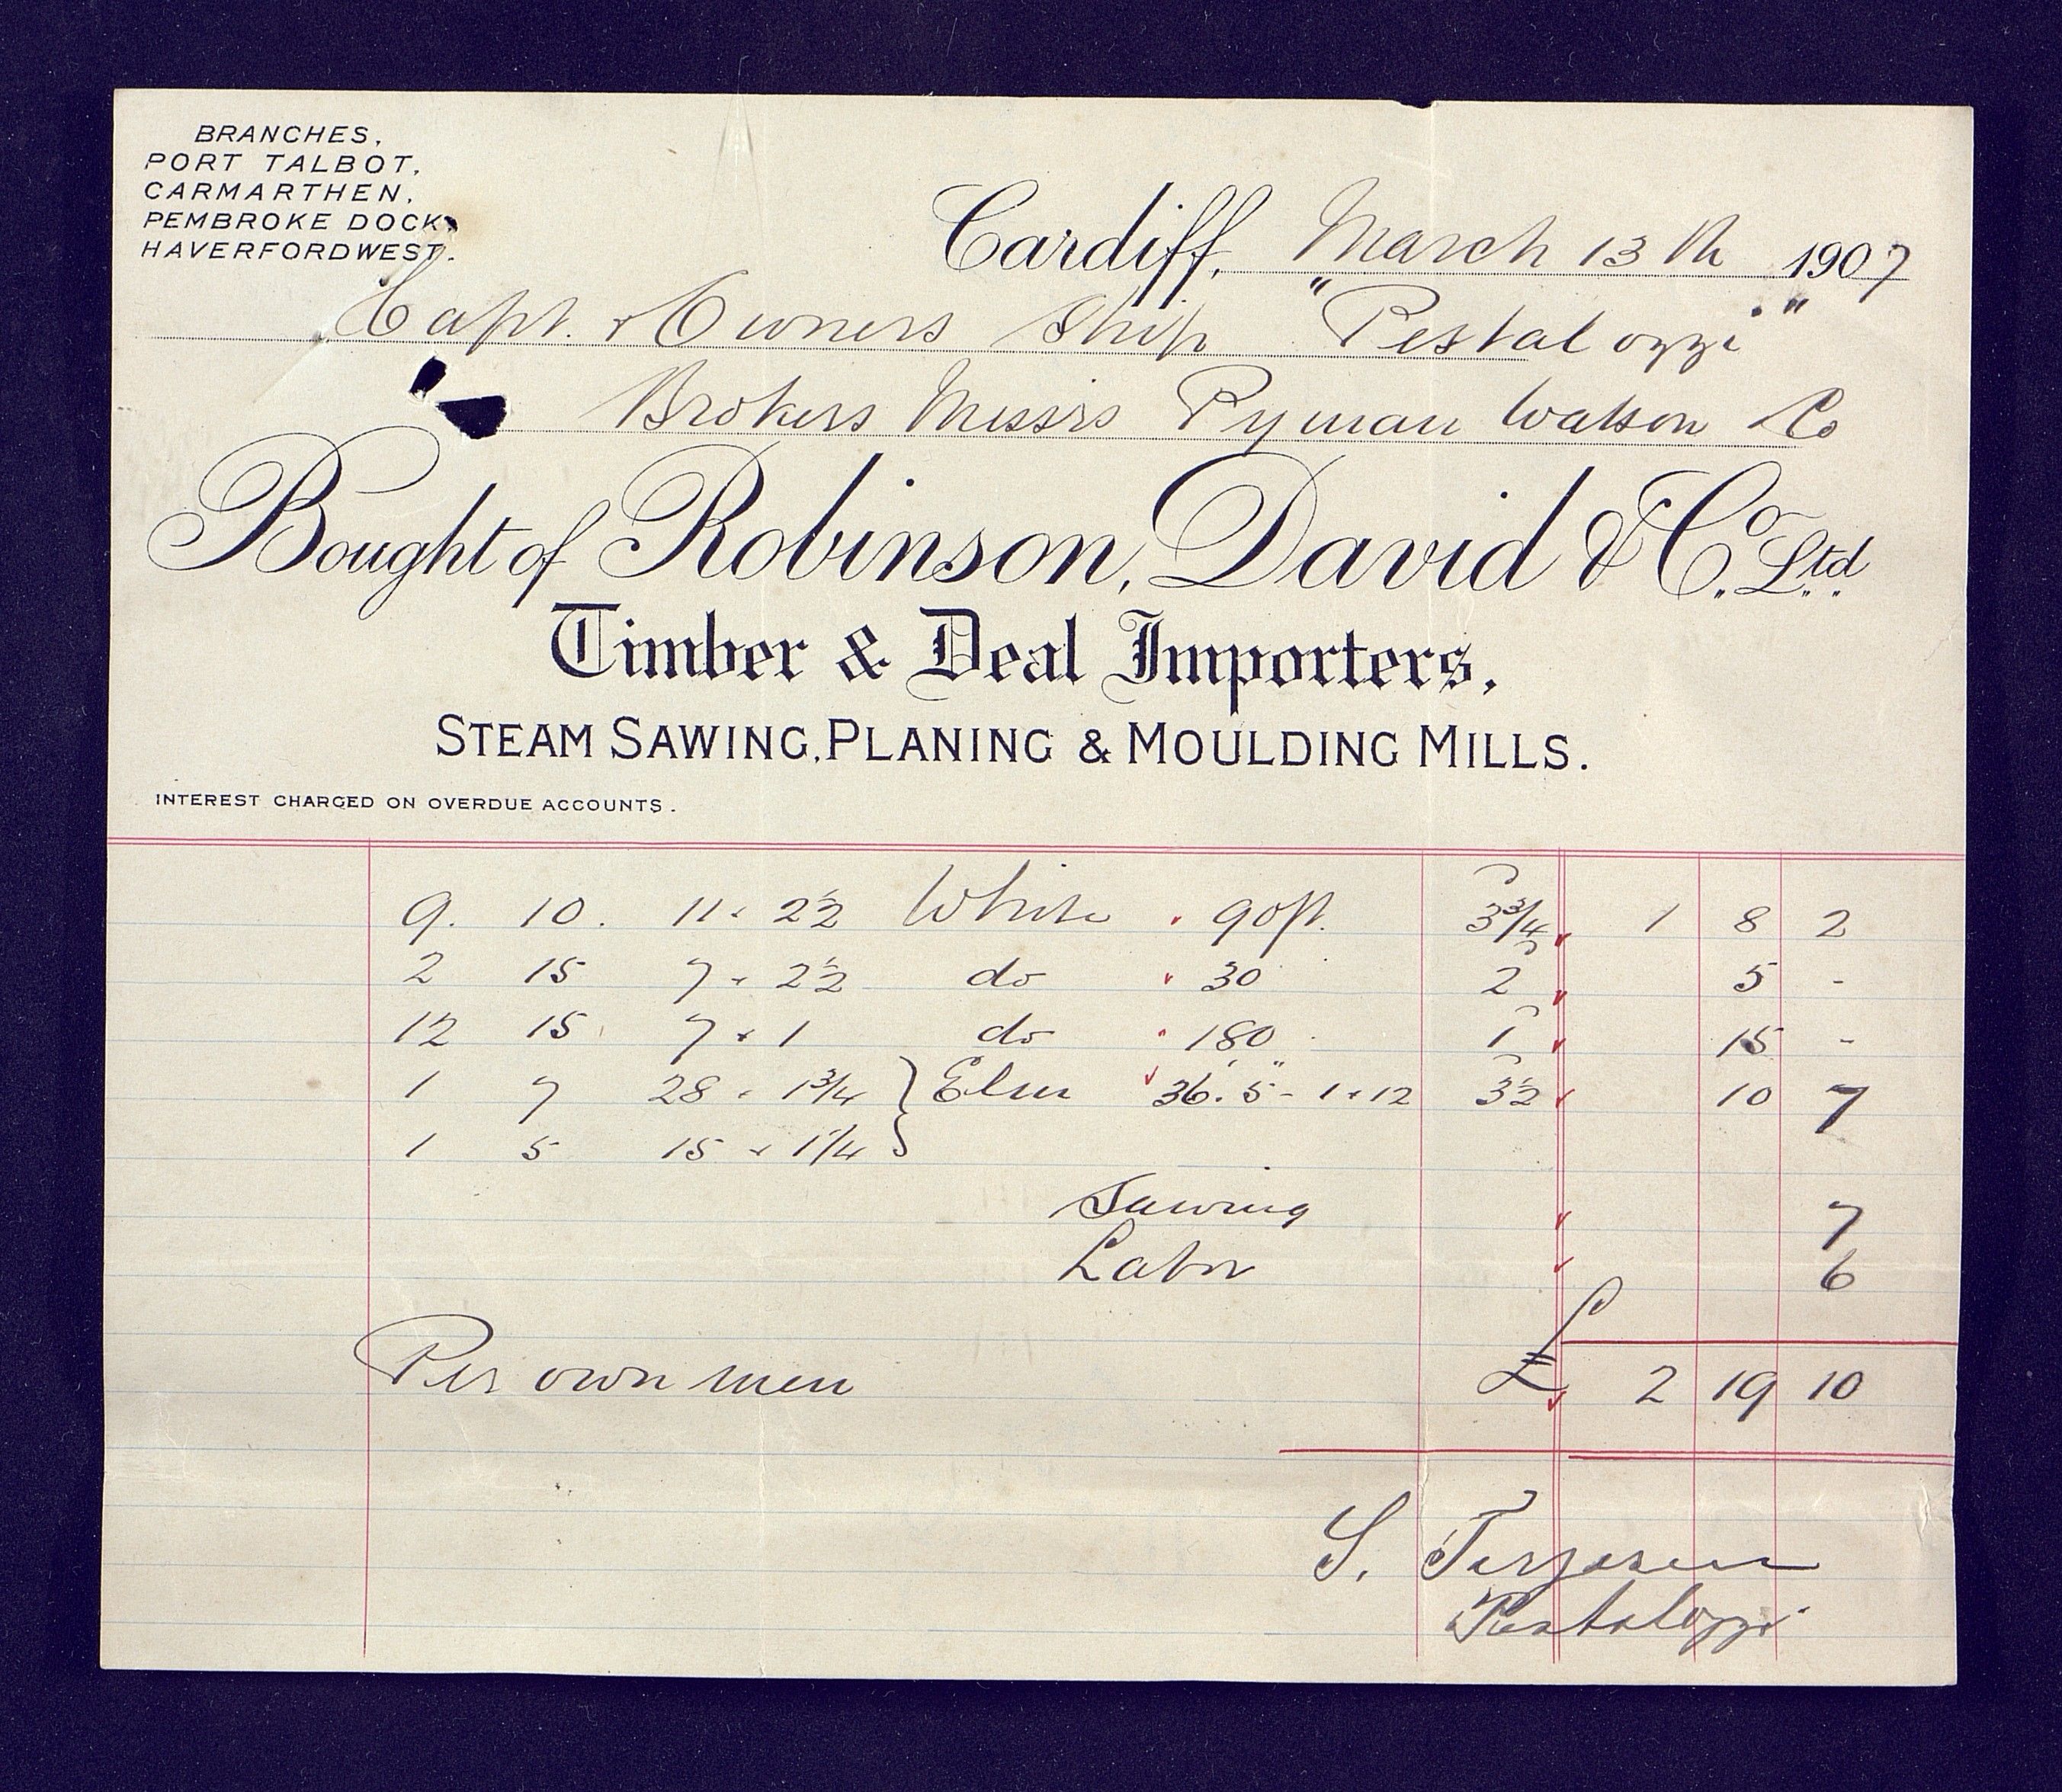 BRANCHES,
PORT TALBOT,
CARMARTHEN,
PEMBROKE DOCK,
HAVERFORDWEST.
Cardiff, March 13th 1907
Capt. & Owners Ship "Pestalozzi"
Brokers Messrs Pyman Watson & Co
Bought of Robinson, David & Co. Ltd.
Timber & Deal Importers,
STEAM SAWING, PLANING & MOULDING MILLS.
INTEREST CHARGED ON OVERDUE ACCOUNTS.
9. 10. 11 x 2½ White 90ft. 3¾ 1 8 2
2 15 7 x 2½ do 30 2 5 -
12 15 7 x 1 do 180 1 15 -
1 7 28 x 1¾ } Elm 36' 5" - 1 x 12 3½ 10 7
1 5 15 x 1¼ }
Sawing 7
Labor 6
Per own men £ 2 19 10
S. Terjesen
Pestalozzi